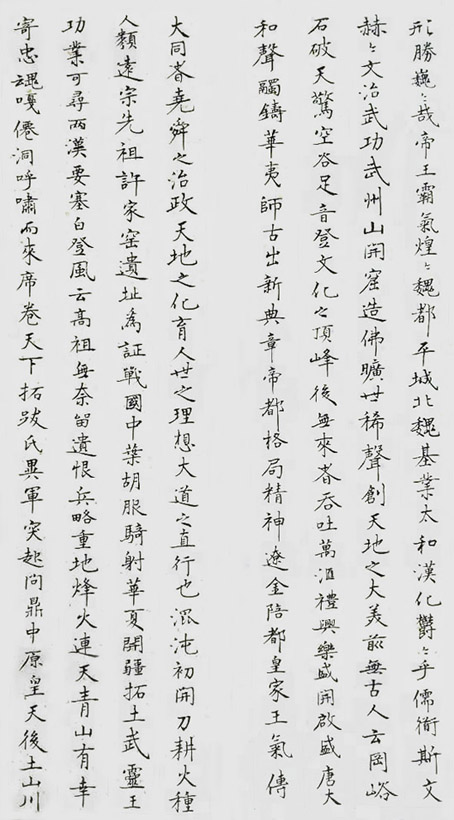 大同者堯舜之治政天地之化育人世之理想大道之直行也混沌初開刀耕火種
人類遠宗先祖許家窑遺址為証戰國中葉胡服騎射華夏開疆拓土武靈王
功業可尋兩漢要塞白登風云高祖無奈留遺恨兵略重地烽火連天青山有幸
寄忠魂嘎僊洞呼嘯而來席卷天下拓跋氏異軍突起问鼎中原皇天後土山川
形勝巍々哉帝王霸氣煌々魏都平城北魏基業太和漢化鬱々乎儒術斯文
赫々文治武功武州山開窟造佛曠世稀聲創天地之大美前無古人云岡峪
石破天驚空谷足音登文化之頂峰後無來者吞吐萬滙禮興樂盛開啟盛唐大
和聲融鑄華夷師古出新典章帝都格局精神遼金陪都皇家王氣傳